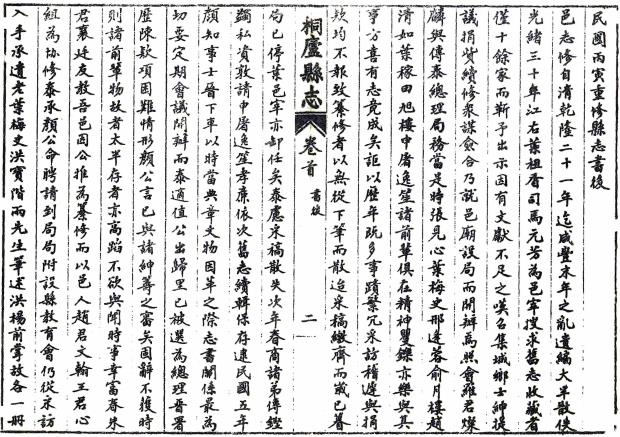 民國丙寅重修縣志書後
邑志修自清乾隆二十一年迄咸豐末年之亂遺編大半散佚
光緒三十年江右葉祖眉司馬元芳為邑宰搜求舊志收藏者
僅十餘家而靳予出示固有文獻不足之嘆召集城鄉士紳提
議捐貲續修眾謀僉合乃就邑廟設局而開辦焉照會羅君燦
麟與傅泰總理局務當是時張見心葉梅史邢達蓉俞月樓趙
清如葉稼田旭樓申屠逸笙諸前輩俱在精神矍鑠亦樂與其
事方喜有志竟成矣詎以歷年既多事蹟繁冗采訪稽遲與捐
欵均不報致纂修者以無從下筆而散迨采稿繳齊而宬已眷
桐廬縣志
卷首
書後
二
局已停葉邑宰亦卸任矣泰慮采稿散失次年春商諸弟傅鏗
蠲私資敦請申屠逸笙孝廉依次舊志續輯保存逮民國五年
顏知事士晉下車以時當典章文物因革之際志書關係最為
切要定期會議開辦而泰適值公出歸里已被選為總理晉署
歷陳欵項困難情形顏公言已與諸紳籌之審矣固辭不獲時
則諸前輩物故者太半存者亦高蹈不欲與聞時事幸富春朱
君襄廷友教吾邑因公推為纂修而以邑人趙君文翰王君心
組為協修泰承顏公命聘請到局局附設縣教育會仍從采訪
入手承遺老葉梅史洪寶階兩先生筆述洪楊前掌故各一冊